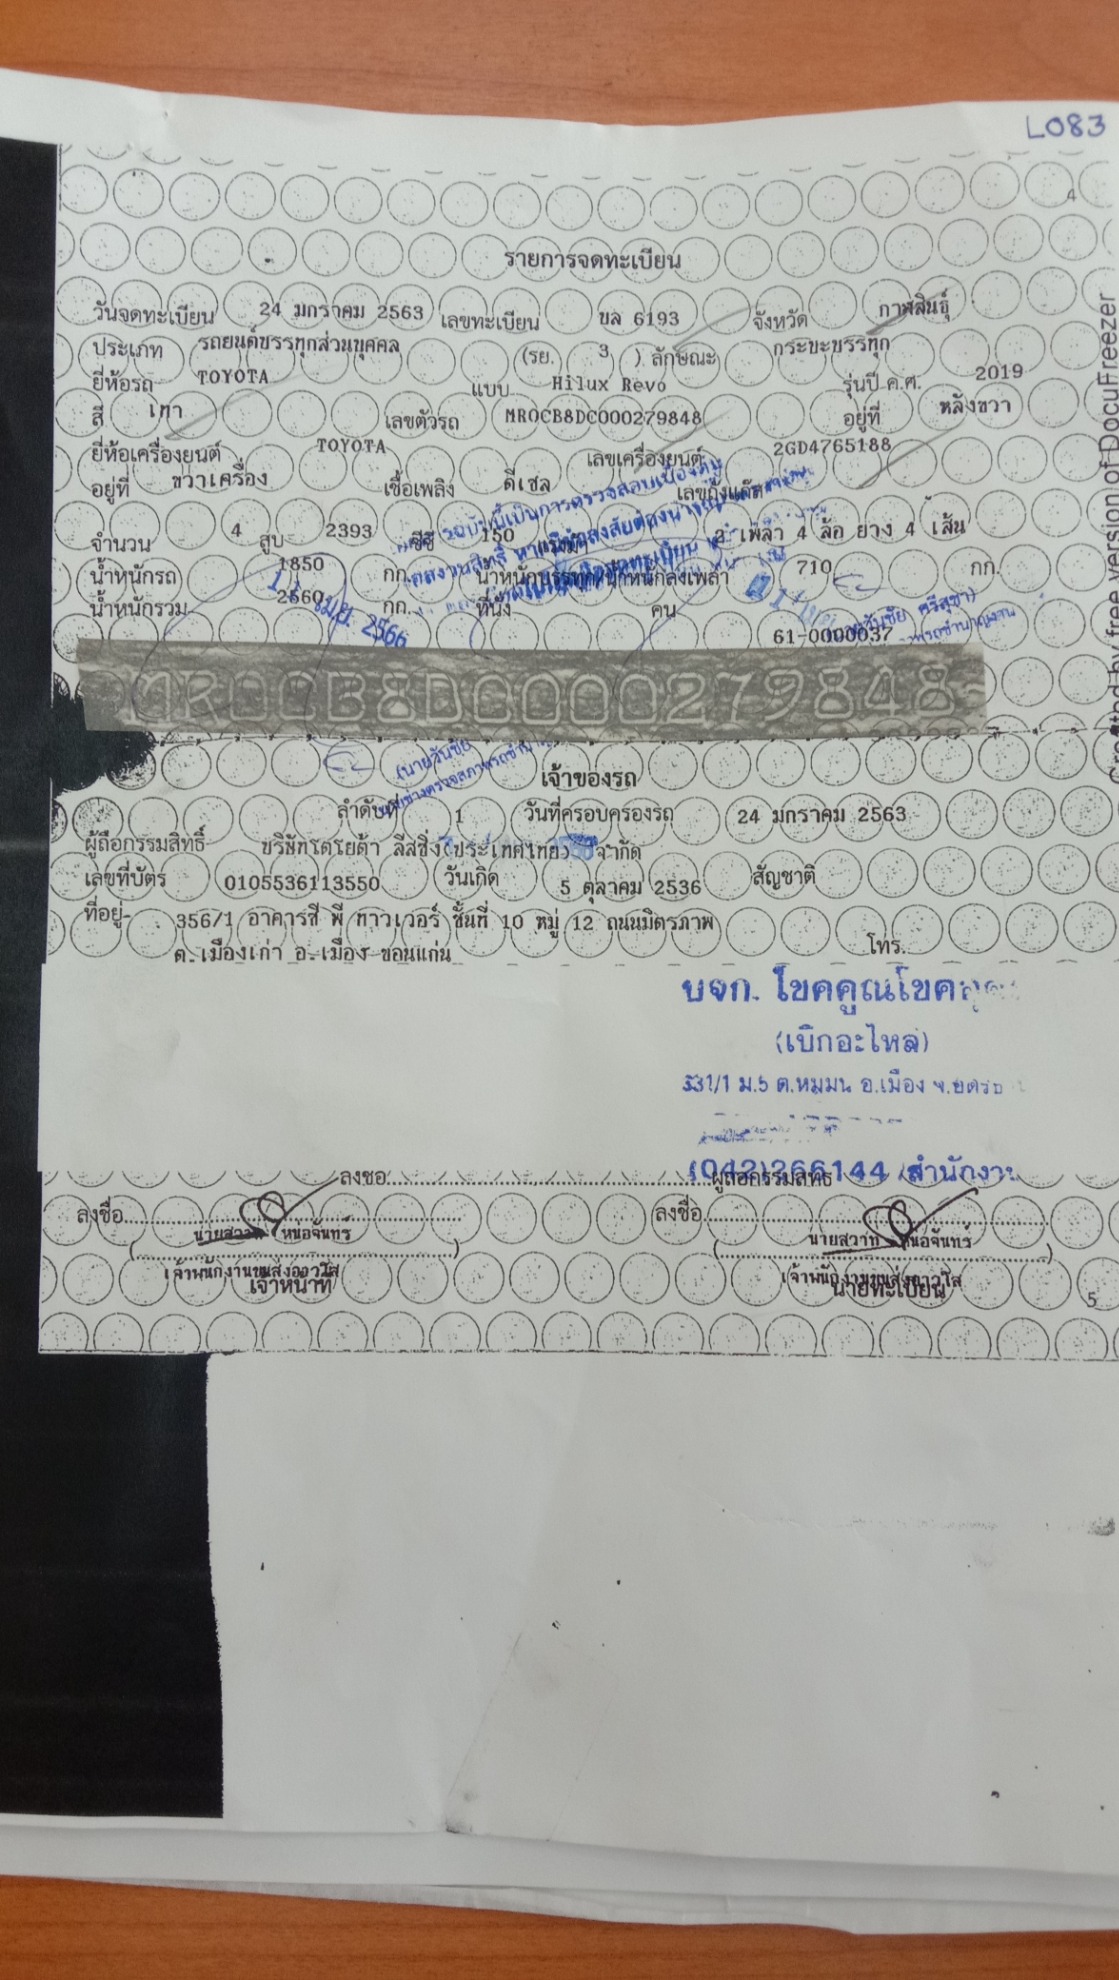 L083
4
รายการจดทะเบียน
วันจดทะเบียน 24 มกราคม 2563 เลขทะเบียน ขล 6193 จังหวัด กาฬสินธุ์
ประเภท รถยนต์บรรทุกส่วนบุคคล (รย. 3 ) ลักษณะ กระบะบรรทุก
ยี่ห้อรถ TOYOTA แบบ Hilux Revo รุ่นปี ค.ศ. 2019
สี เทา เลขตัวรถ MR0CB8DC000279848 อยู่ที่ หลังขวา
ยี่ห้อเครื่องยนต์ TOYOTA เลขเครื่องยนต์ 2GD4765188
อยู่ที่ ขวาเครื่อง เชื้อเพลิง ดีเซล เลขถังแก๊ส
จำนวน 4 สูบ 2393 ซีซี 150 แรงม้า 2 เพลา 4 ล้อ ยาง 4 เส้น
น้ำหนักรถ 1850 กก. น้ำหนักบรรทุก/น้ำหนักลงเพลา 710 กก.
น้ำหนักรวม 2560 กก. ที่นั่ง คน
เม.ย. 2566
(นายวันชัย ศรีสุชา)
61-0000037
MR0CB8DC000279848
(นายวันชัย
เจ้าของรถ
ลำดับที่ 1 วันที่ครอบครองรถ 24 มกราคม 2563
ผู้ถือกรรมสิทธิ์ บริษัทโตโยต้า ลีสซิ่ง(ประเทศไทย) จำกัด
เลขที่บัตร 0105536113550 วันเกิด 5 ตุลาคม 2536 สัญชาติ
ที่อยู่ 356/1 อาคารซี พี ทาวเวอร์ ชั้นที่ 10 หมู่ 12 ถนนมิตรภาพ
ต.เมืองเก่า อ.เมือง ขอนแก่น โทร.
บจก. โชคคูณโชค
(เบิกอะไหล่)
331/1 ม.5 ต.หมูม่น อ.เมือง จ.อุดร
(042)266144 สำนักงาน
ลงชื่อ ผู้ถือกรรมสิทธิ์
ลงชื่อ ลงชื่อ
นายสวาท หน่อจันทร์ นายสวาท หน่อจันทร์
เจ้าพนักงานขนส่งอาวุโส เจ้าพนักงานขนส่งอาวุโส
เจ้าหน้าที่ นายทะเบียน
5